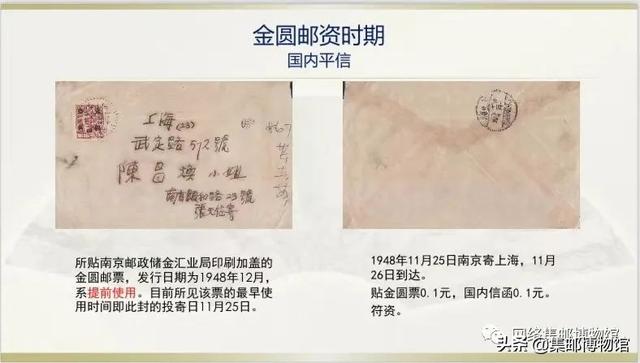 金圆邮资时期
国内平信
上海(23)
武定路572號
陳昌 小姐
南京 和路23號
張 寄
所贴南京邮政储金汇业局印刷加盖的
金圆邮票，发行日期为1948年12月，
系提前使用。目前所见该票的最早使
用时间即此封的投寄日11月25日。
1948年11月25日南京寄上海，11月
26日到达。
贴金圆票0.1元，国内信函0.1元。
符资。
网络集邮博物馆
头条@集邮博物馆